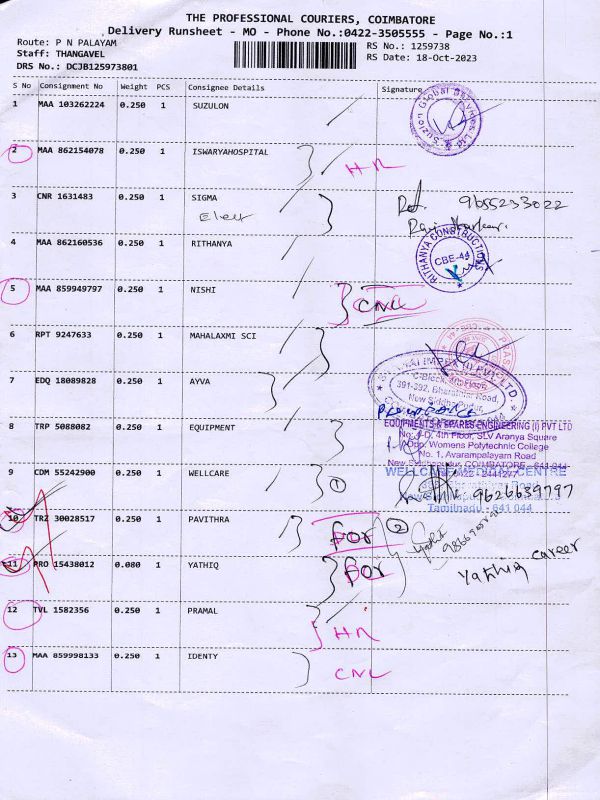 THE PROFESSIONAL COURIERS, COIMBATORE
Delivery Runsheet - MO - Phone No.:0422-3505555 - Page No.:1
Route: P N PALAYAM
RS No.: 1259738
Staff: THANGAVEL
RS Date: 18-Oct-2023
DRS No.: DCJB125973801
S No Consignment No Weight PCS Consignee Details Signature
1 MAA 103262224 0.250 1 SUZULON
2 MAA 862154078 0.250 1 ISWARYAHOSPITAL
HR
3 CNR 1631483 0.250 1 SIGMA
Elect
9655233022
4 MAA 862160536 0.250 1 RITHANYA
RITHANYA CONSTRUCTIONS
CBE-44
5 MAA 859949797 0.250 1 NISHI
CNL
6 RPT 9247633 0.250 1 MAHALAXMI SCI
7 EDQ 18089828 0.250 1 AYVA
C-Block, 4th Floor,
391-392, Bharathiar Road,
New Siddhapudur,
8 TRP 5088082 0.250 1 EQUIPMENT
EQUIPMENTS & SPARES ENGINEERING (I) PVT LTD
No: 9-D, 4th Floor, SLV Aranya Square
Opp. Womens Polytechnic College
No. 1, Avarampalayam Road
New Siddhapudur, COIMBATORE - 641 044
9 CDM 55242900 0.250 1 WELLCARE
1
WELLCARE MEDICAL CENTRE
Tamilnadu - 641 044
9626639797
10 TRZ 30028517 0.250 1 PAVITHRA
For
2
11 PRO 15438012 0.080 1 YATHIQ
For
Yathiq career
12 TVL 1582356 0.250 1 PRAMAL
HR
13 MAA 859998133 0.250 1 IDENTY
CNL